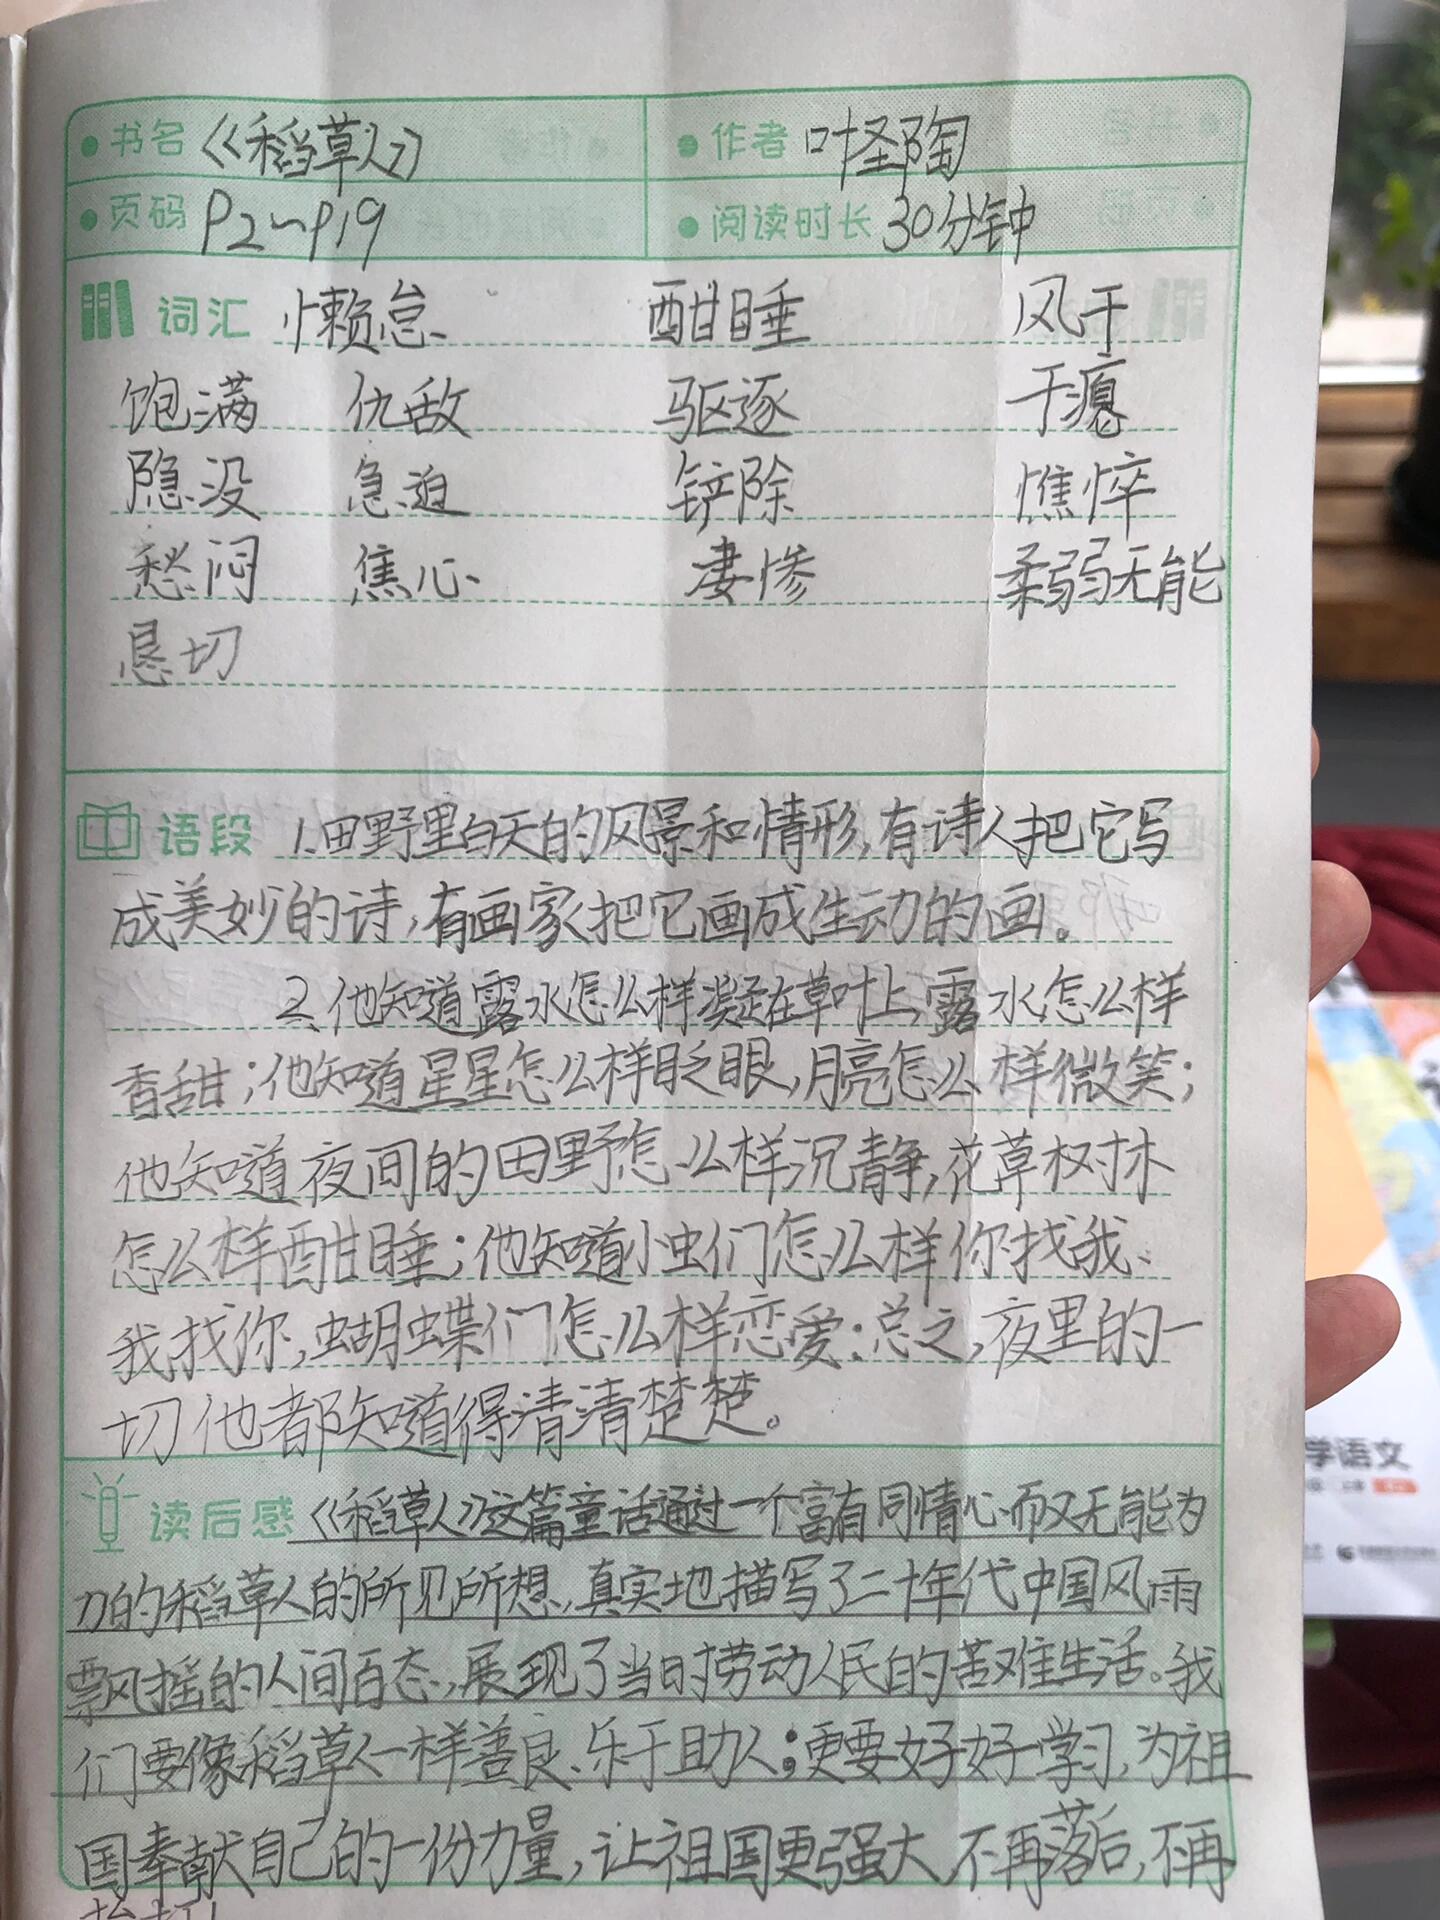 书名 《稻草人》 作者 叶圣陶
页码 P2~P19 阅读时长 30分钟
词汇 懒怠 酣睡 风干
饱满 仇敌 驱逐 干瘪
隐没 急迫 铲除 憔悴
愁闷 焦心 凄惨 柔弱无能
恳切
语段 1.田野里白天的风景和情形,有诗人把它写
成美妙的诗,有画家把它画成生动的画。
2.他知道露水怎么样凝在草叶上,露水怎么样
香甜;他知道星星怎么样眨眼,月亮怎么样微笑;
他知道夜间的田野怎么样沉静,花草树木
怎么样酣睡;他知道小虫们怎么样你找我、
我找你,蝴蝶们怎么样恋爱:总之,夜里的一
切他都知道得清清楚楚。
读后感 《稻草人》这篇童话通过一个富有同情心而又无能为
力的稻草人的所见所想,真实地描写了二十年代中国风雨
飘摇的人间百态,展现了当时劳动人民的苦难生活。我
们要像稻草人一样善良、乐于助人;更要好好学习,为祖
国奉献自己的一份力量,让祖国更强大,不再落后,不再
学语文